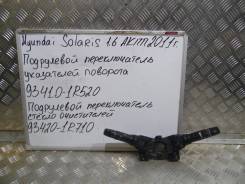 Hyundai Solaris 1.6 АКПП 2011г.
Подрулевой переключатель
указателей поворота
93410-1R520
Подрулевой переключатель
стекло очистителей
93420-1R710